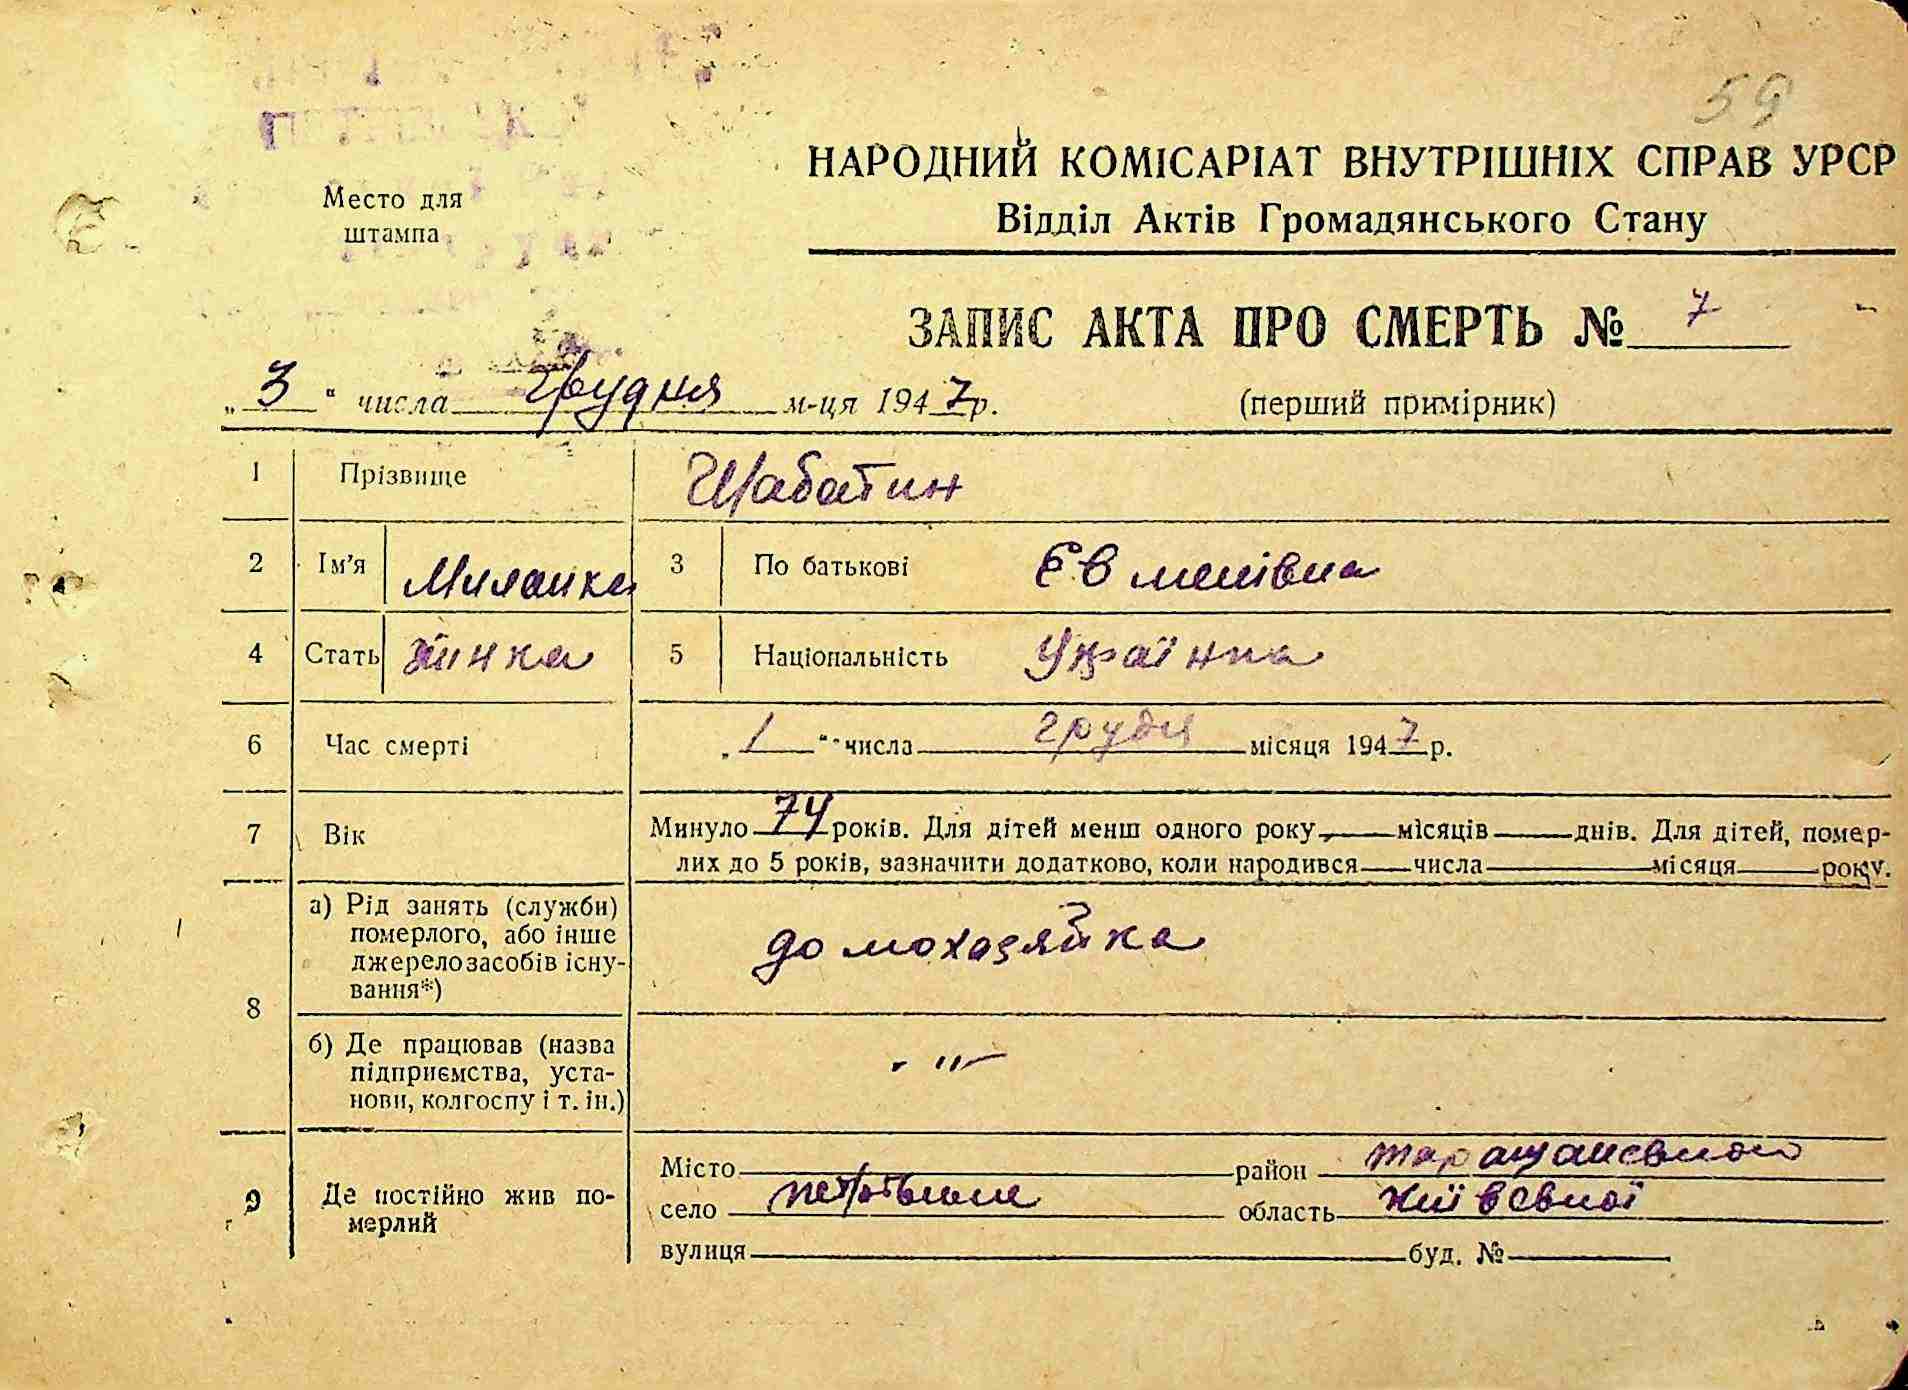 59
НАРОДНИЙ КОМІСАРІАТ ВНУТРІШНІХ СПРАВ УРСР
Відділ Актів Громадянського Стану
Место для
штампа
ЗАПИС АКТА ПРО СМЕРТЬ № 7
„3“ числа грудня м-ця 1947 р.
(перший примірник)
1 Прізвище Шабатин
2 Ім'я Миланка 3 По батькові Євменівна
4 Стать жінка 5 Національність Українка
6 Час смерті „1“ числа грудня місяця 1947 р.
7 Вік Минуло 74 років. Для дітей менш одного року — місяців — днів. Для дітей, помер-
лих до 5 років, зазначити додатково, коли народився — числа — місяця — року.
8 а) Рід занять (служби)
померлого, або інше
джерело засобів існу-
вання*)
домохазяйка
б) Де працював (назва
підприємства, уста-
нови, колгоспу і т. ін.)
- " -
9 Де постійно жив по-
мерлий
Місто район таращанського
село область київської
вулиця буд. №